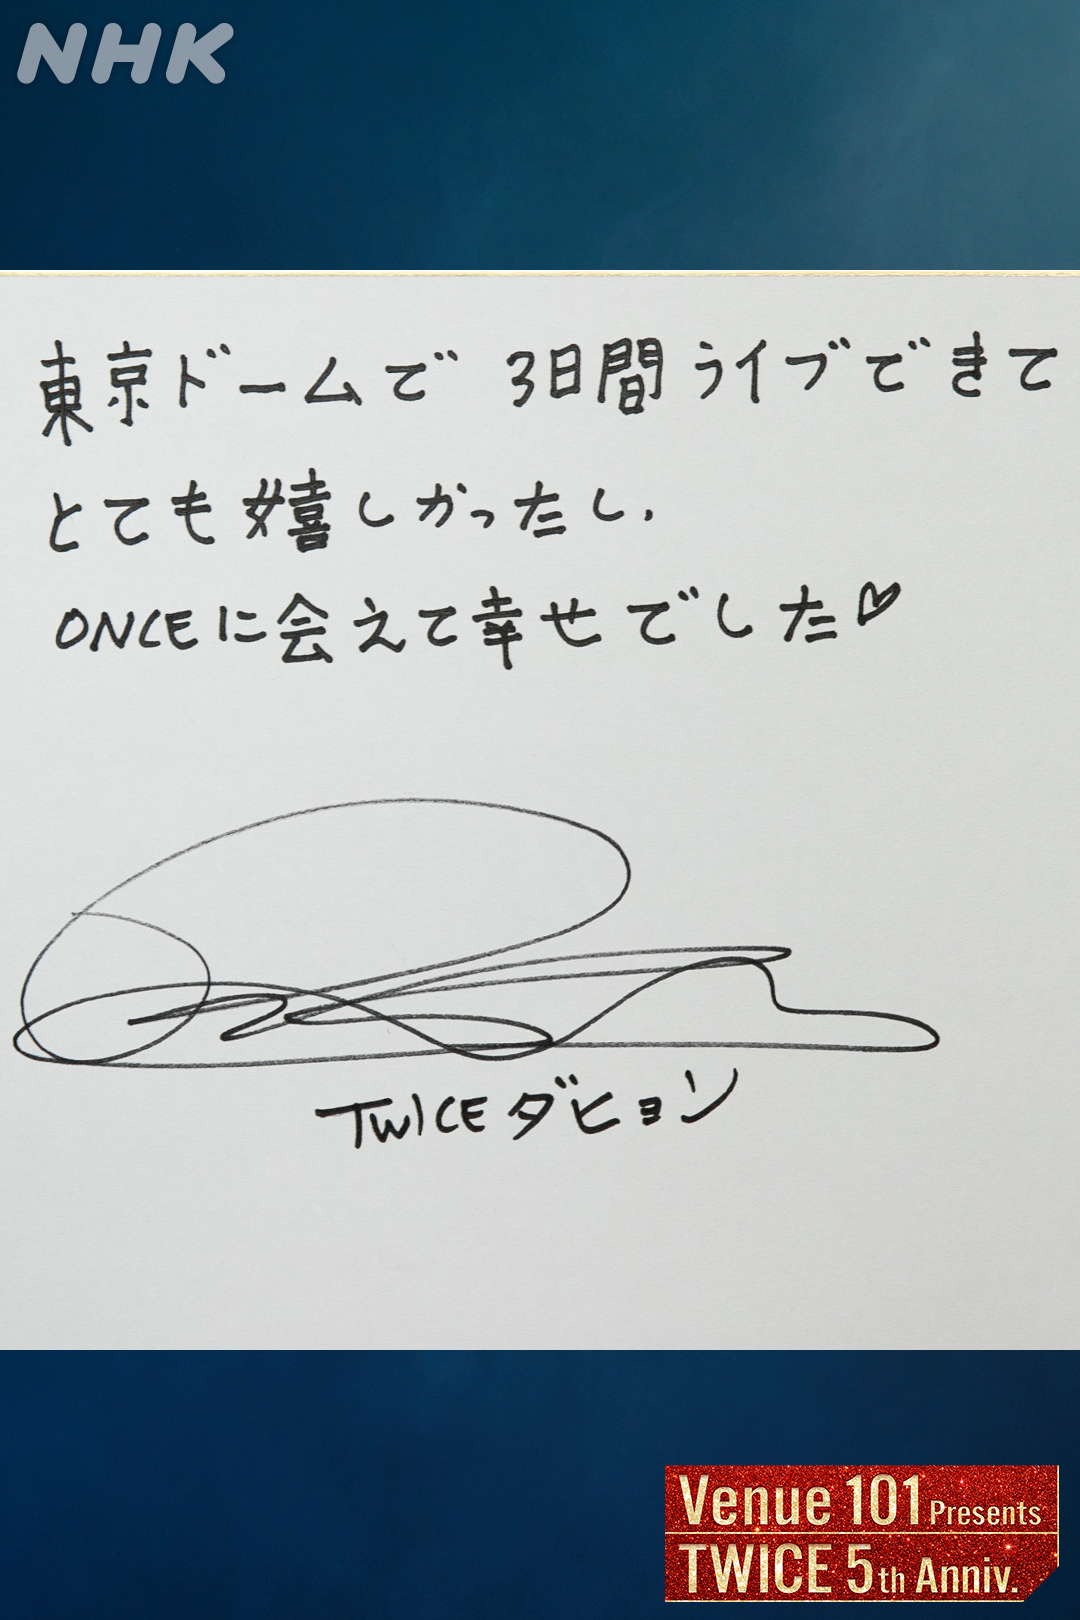 NHK
東京ドームで 3日間ライブできて
とても嬉しかったし、
ONCEに会えて幸せでした♡
TWICEダヒョン
Venue 101 Presents
TWICE 5th Anniv.